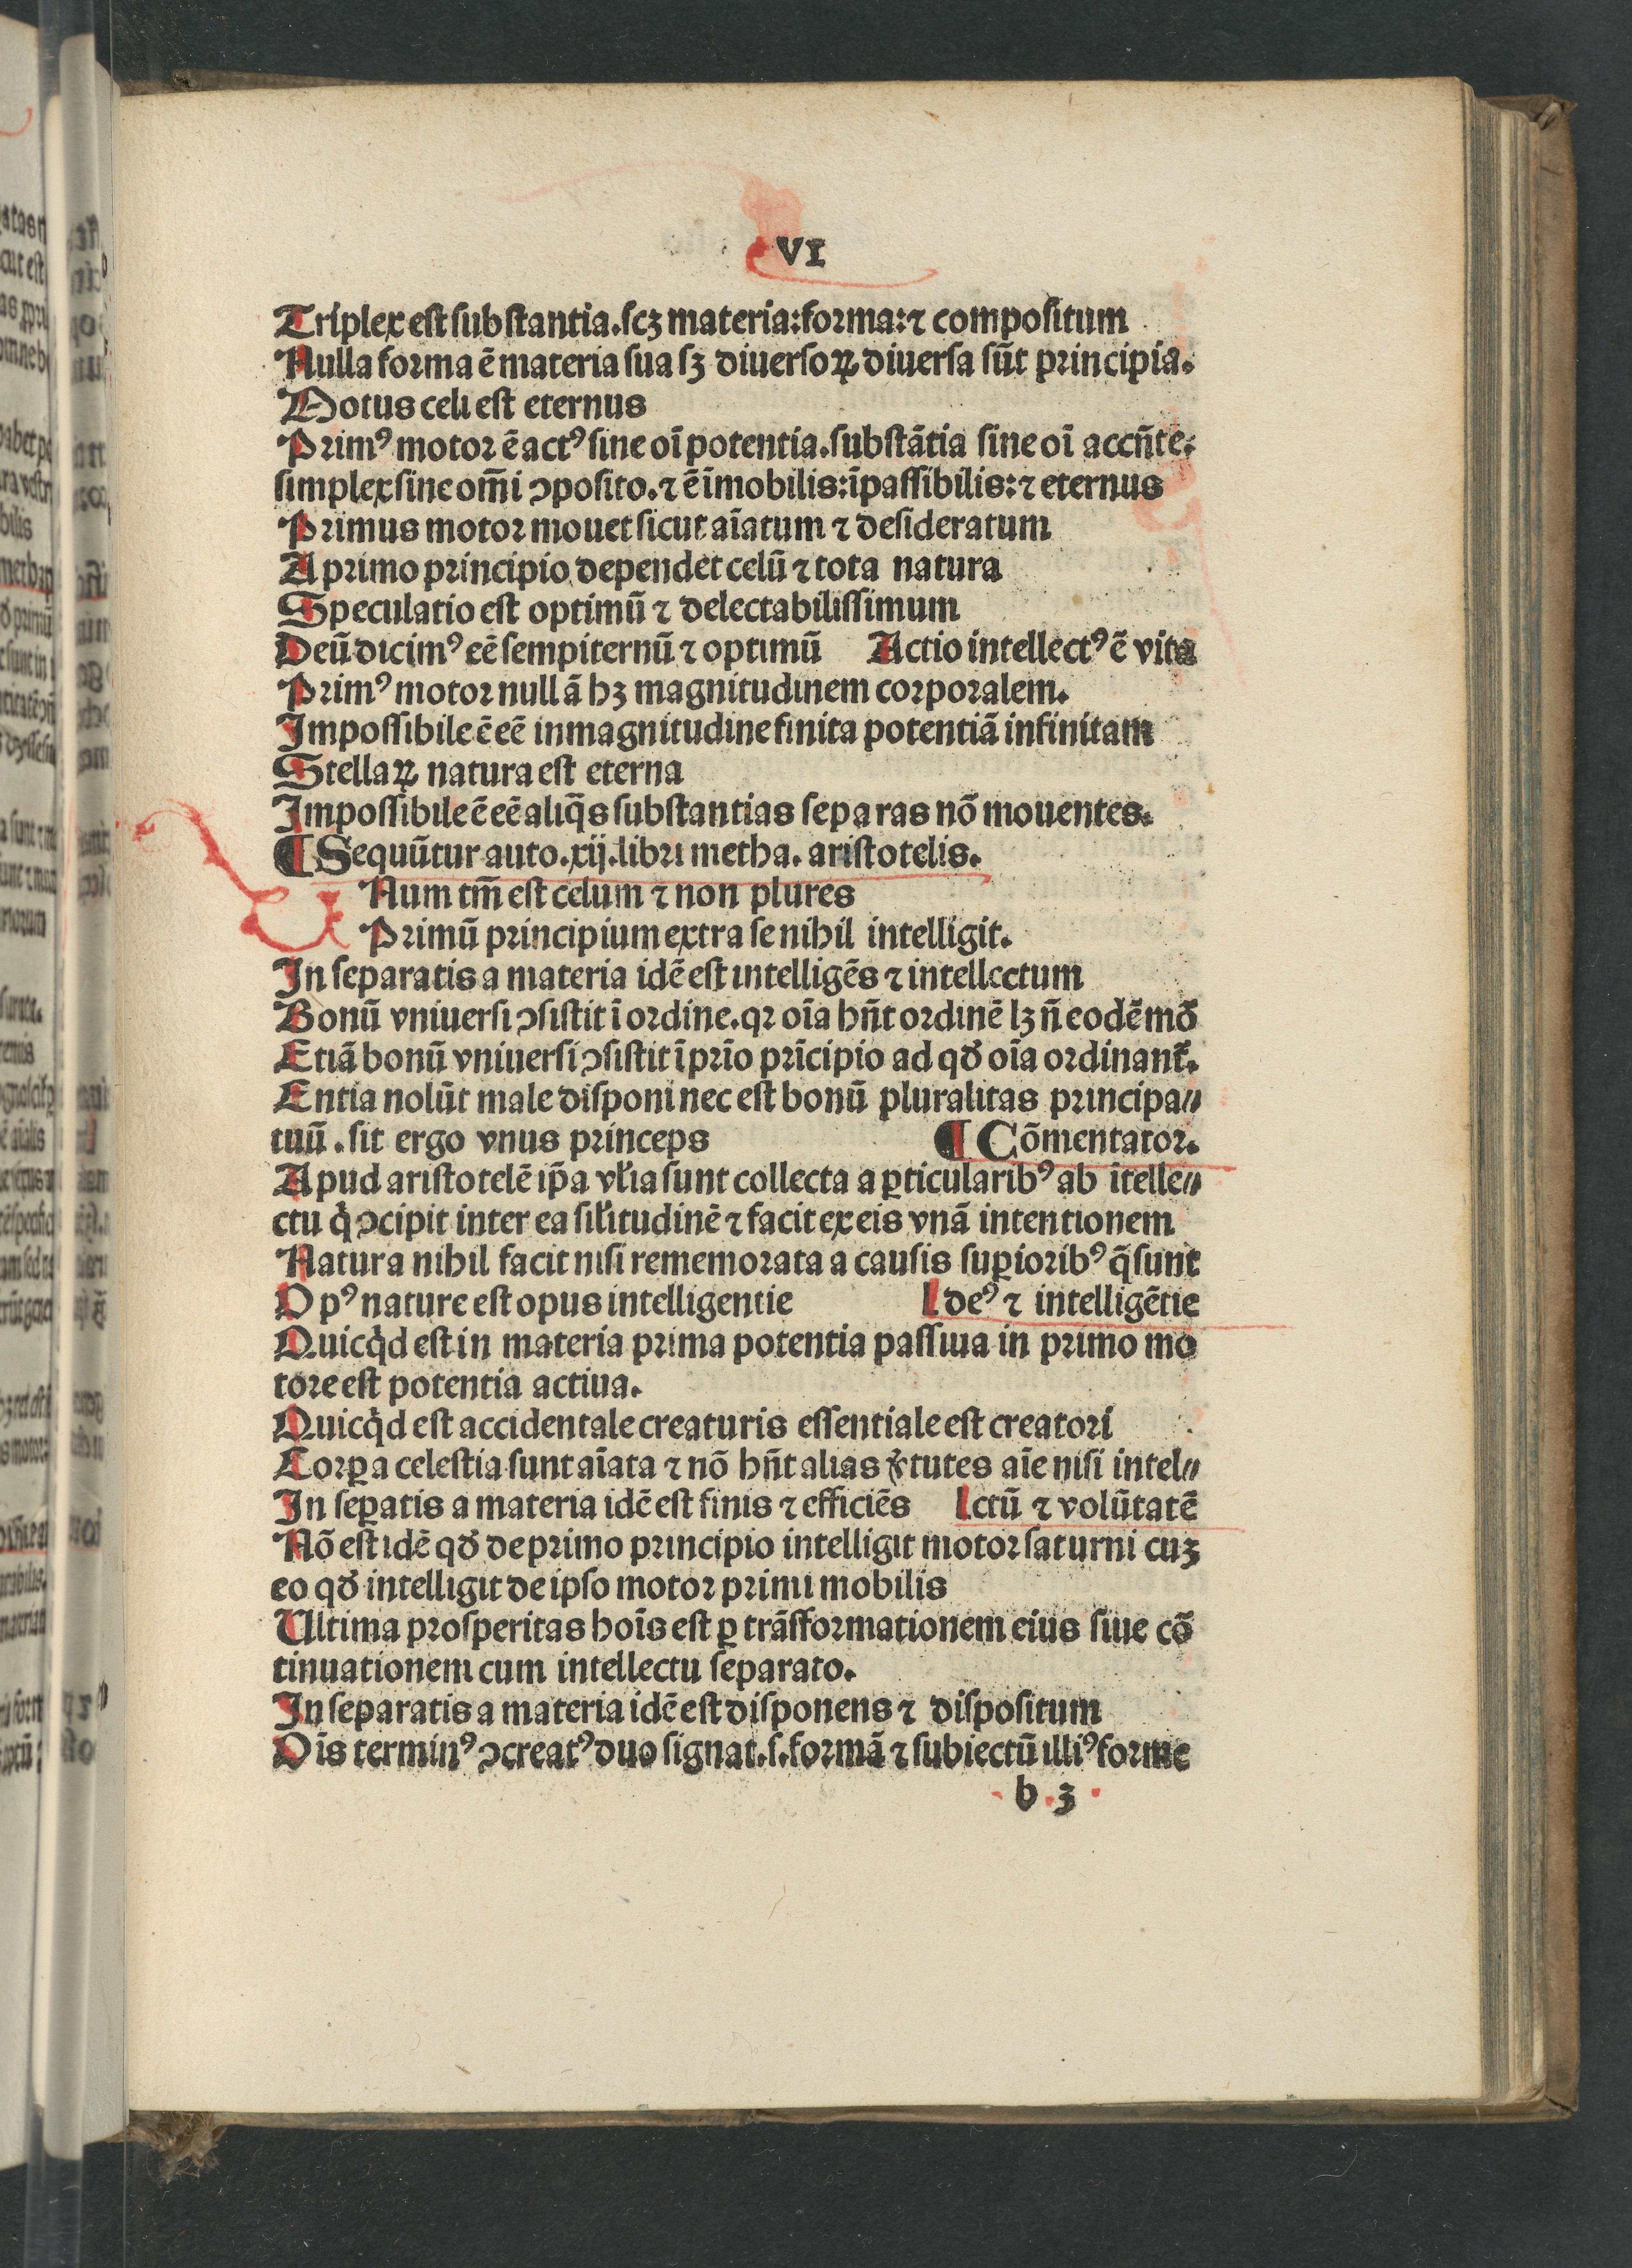 VI
Triplex est substantia.scꝫ materia:forma:⁊ compositum
Nulla forma ē materia sua sꝫ diuersoꝝ diuersa sūt principia.
Motus celi est eternus
Primꝰ motor ē actꝰ sine oī potentia.substātia sine oī accn̄te:
simplex sine om̄i ↄposito.⁊ ē īmobilis:īpassibilis:⁊ eternus
Primus motor mouet sicut aīatum ⁊ desideratum
A primo principio dependet celū ⁊ tota natura
Speculatio est optimū ⁊ delectabilissimum
Deū dicimꝰ eē sempiternū ⁊ optimū Actio intellectꝰ ē vita
Primꝰ motor nullā hꝫ magnitudinem corporalem.
Impossibile ē eē in magnitudine finita potentiā infinitam
Stellaꝝ natura est eterna
Impossibile ē eē aliq̄s substantias separas nō mouentes.
¶ Sequūtur auto.xij.libri metha. aristotelis.
U Num tm̄ est celum ⁊ non plures
Primū principium extra se nihil intelligit.
In separatis a materia idē est intelligēs ⁊ intellectum
Bonū vniuersi ↄsistit ī ordine.qꝛ oīa hn̄t ordinē lꝫ n̄ eodē mō
Etiā bonū vniuersi ↄsistit ī prīo prīcipio ad qđ oīa ordinant᷑.
Entia nolūt male disponi nec est bonū pluralitas principa⸗
tuū . sit ergo vnus princeps ¶ Cōmentator.
Apud aristotelē ip̄a vľia sunt collecta a ꝑticularibꝰ ab itelle⸗
ctu q̇ ↄcipit inter ea siľitudinē ⁊ facit ex eis vnā intentionem
Natura nihil facit nisi rememorata a causis suꝑioribꝰ q̄ sunt
Opꝰ nature est opus intelligentie [deꝰ ⁊ intelligētie
Quicq̇d est in materia prima potentia passiua in primo mo
tore est potentia actiua.
Quicq̇d est accidentale creaturis essentiale est creatori
Corꝑa celestia sunt aīata ⁊ nō hn̄t alias v̓tutes aīe nisi intel⸗
In seꝑatis a materia idē est finis ⁊ efficiēs [ctū ⁊ volūtatē
Nō est idē qđ de primo principio intelligit motor saturni cuꝫ
eo qđ intelligit de ipso motor primi mobilis
Ultima prosperitas hoīs est ꝑ trāsformationem eius siue cō
tinuationem cum intellectu separato.
In separatis a materia idē est disponens ⁊ dispositum
Ois terminꝰ ↄcreatꝰ duo signat.s.formā ⁊ subiectū illiꝰ forme
b.3